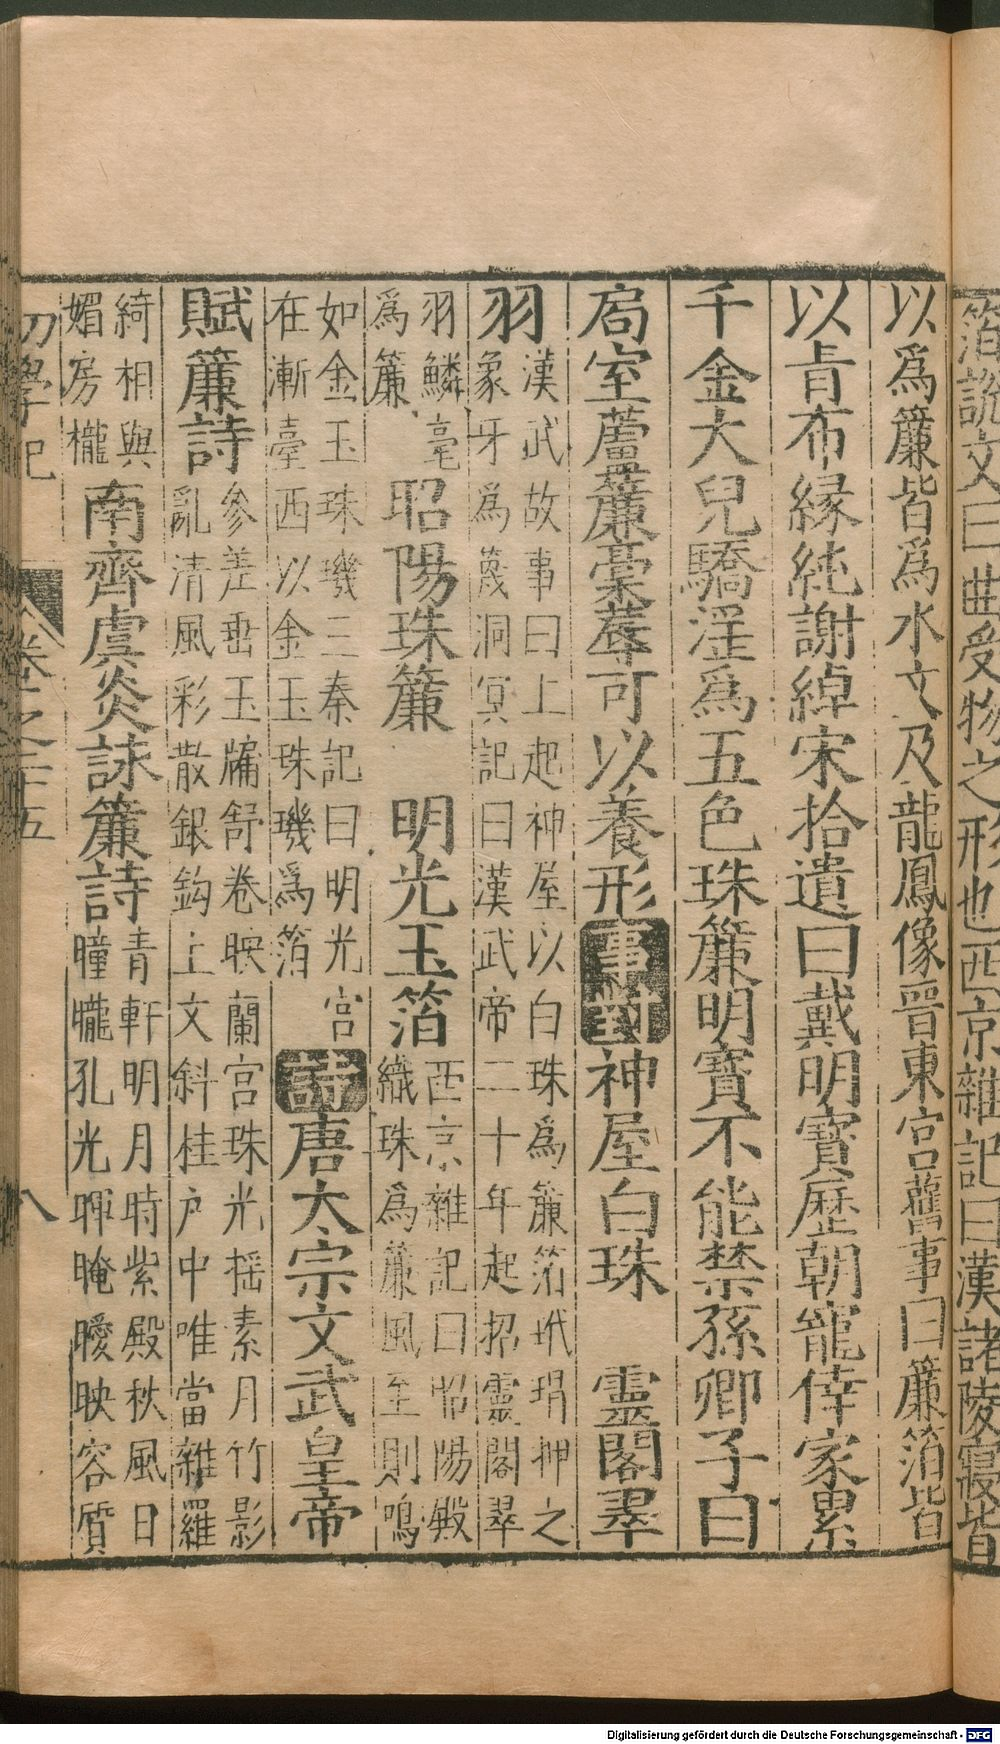 箔說文曰曲受物之形也西京雜記曰漢諸陵寢皆
以爲簾皆爲水文及龍鳳像晉東宮舊事曰簾箔皆
以青布緣純謝綽宋拾遺曰戴明寶歷朝寵倖家累
千金大兒驕淫爲五色珠簾明寶不能禁孫卿子曰
局室蘆簾藁蓐可以養形事對神屋白珠　靈閣翠
羽
漢武故事曰上起神屋以白珠爲簾箔玳瑁押之
象牙爲篾洞冥記曰漢武帝二十年起招靈閣翠
羽鱗毫
爲簾
昭陽珠簾　明光玉箔
西京雜記曰昭陽殿
織珠爲簾風至則鳴
如金玉珠璣三秦記曰明光宮
在漸臺西以金玉珠璣爲箔
詩唐太宗文武皇帝
賦簾詩
參差垂玉牖舒卷映蘭宮珠光摇素月竹影
亂清風彩散銀鈎上文斜桂户中唯當雜羅
綺相與
媚房櫳
南齊虞炎詠簾詩
青軒明月時紫殿秋風日
曈曨孔光暉晻曖映容質
初學記　卷之二十五　八
Digitalisierung gefördert durch die Deutsche Forschungsgemeinschaft - DFG